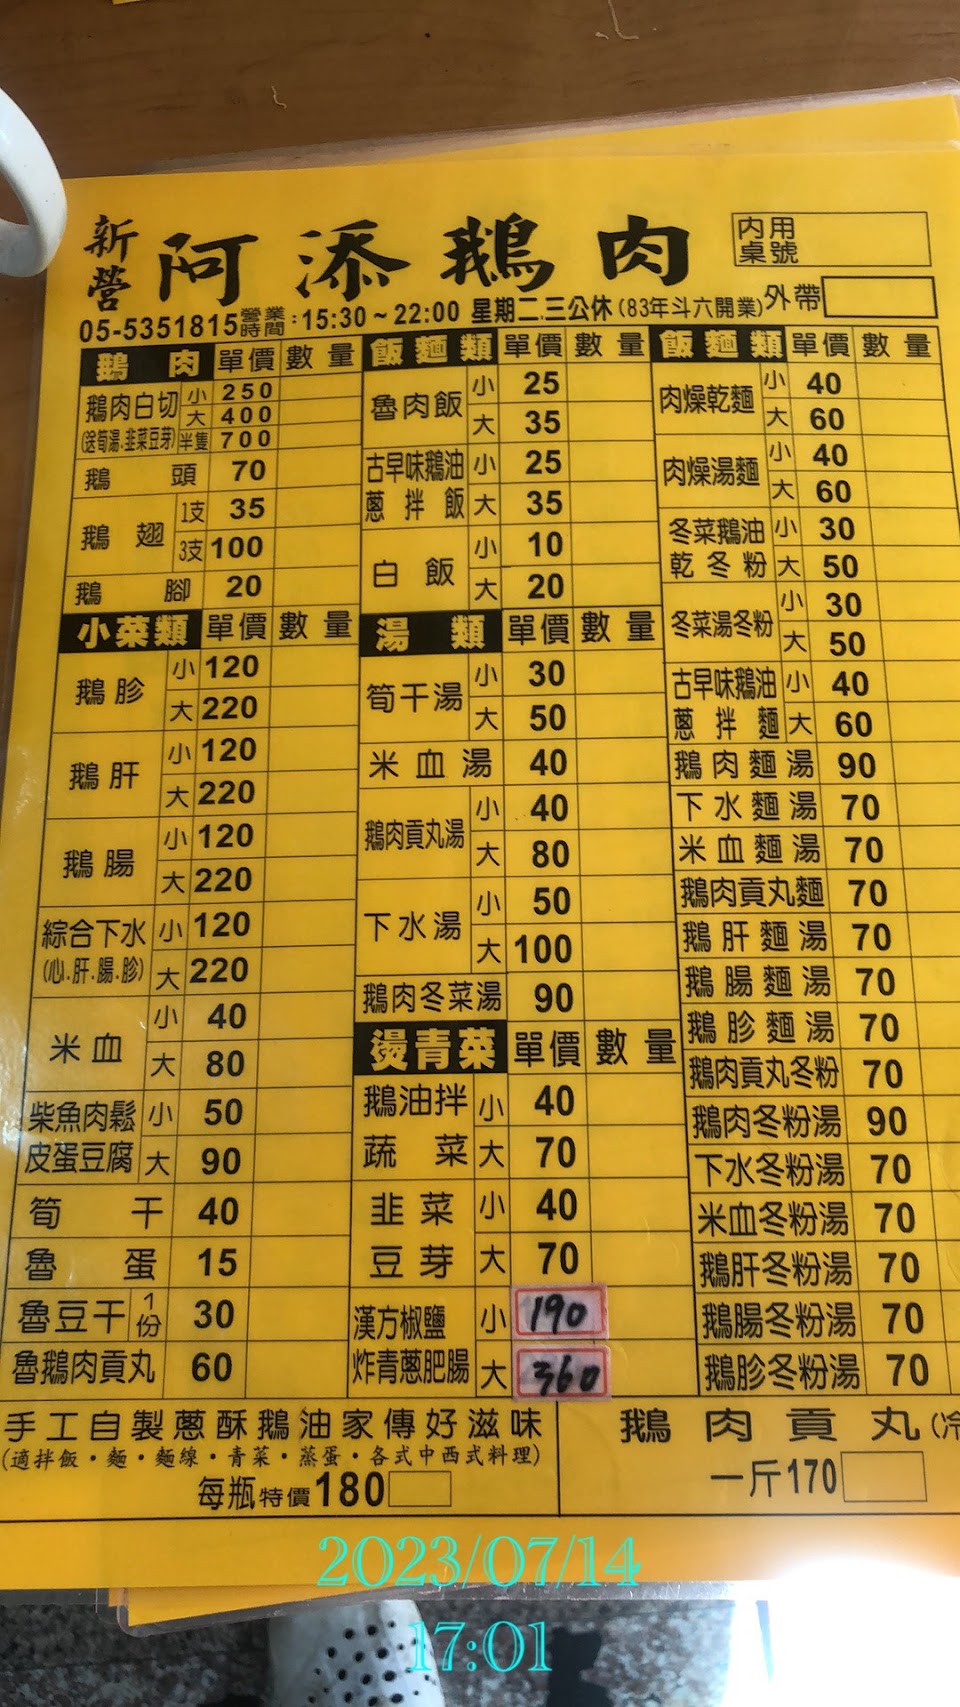 新營 阿添鵝肉
內用桌號
05-5351815 營業時間:15:30~22:00 星期二.三公休(83年斗六開業)外帶
鵝肉 單價 數量
鵝肉白切 小 250
(送筍湯.韭菜豆芽) 大 400
半隻 700
鵝頭 70
鵝翅 1支 35
3支 100
鵝腳 20
小菜類 單價 數量
鵝胗 小 120
大 220
鵝肝 小 120
大 220
鵝腸 小 120
大 220
綜合下水 小 120
(心.肝.腸.胗) 大 220
米血 小 40
大 80
柴魚肉鬆 小 50
皮蛋豆腐 大 90
筍干 40
魯蛋 15
魯豆干 1份 30
魯鵝肉貢丸 60
飯麵類 單價 數量
魯肉飯 小 25
大 35
古早味鵝油 小 25
蔥拌飯 大 35
白飯 小 10
大 20
湯類 單價 數量
筍干湯 小 30
大 50
米血湯 40
鵝肉貢丸湯 小 40
大 80
下水湯 小 50
大 100
鵝肉冬菜湯 90
燙青菜 單價 數量
鵝油拌 小 40
蔬菜 大 70
韭菜 小 40
豆芽 大 70
漢方椒鹽 小 190
炸青蔥肥腸 大 360
飯麵類 單價 數量
肉燥乾麵 小 40
大 60
肉燥湯麵 小 40
大 60
冬菜鵝油 小 30
乾冬粉 大 50
冬菜湯冬粉 小 30
大 50
古早味鵝油 小 40
蔥拌麵 大 60
鵝肉麵湯 90
下水麵湯 70
米血麵湯 70
鵝肉貢丸麵 70
鵝肝麵湯 70
鵝腸麵湯 70
鵝胗麵湯 70
鵝肉貢丸冬粉 70
鵝肉冬粉湯 90
下水冬粉湯 70
米血冬粉湯 70
鵝肝冬粉湯 70
鵝腸冬粉湯 70
鵝胗冬粉湯 70
手工自製蔥酥鵝油家傳好滋味
(適拌飯・麵・麵線・青菜・蒸蛋・各式中西式料理)
每瓶特價180
鵝肉貢丸(冷
一斤170
2023/07/14
17:01